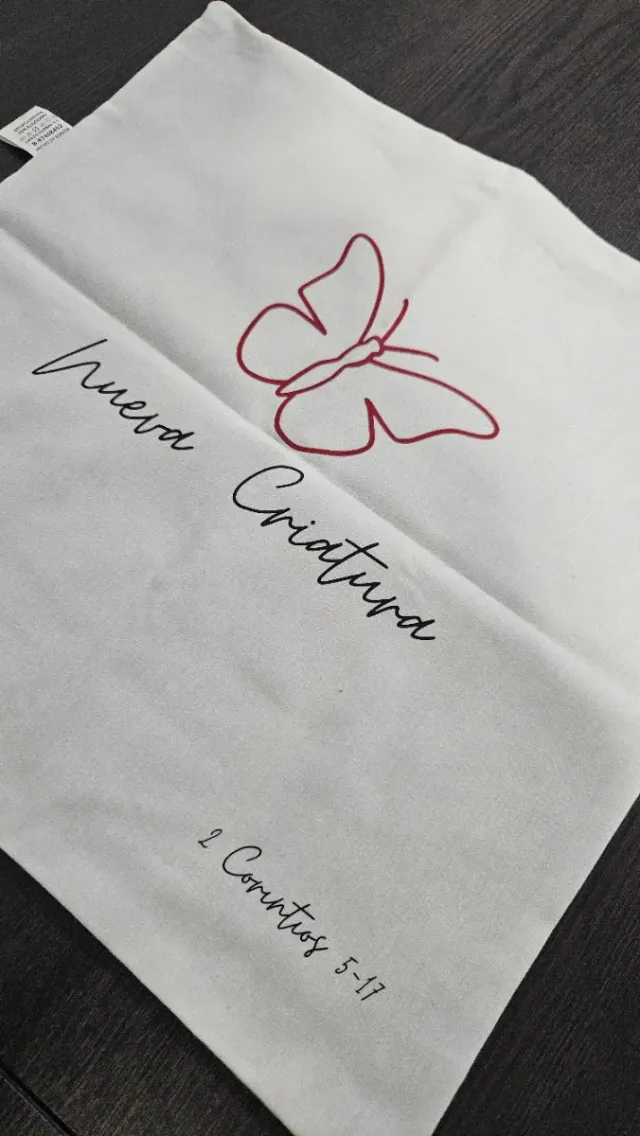 Nueva Criatura
2 Corintios 5-17